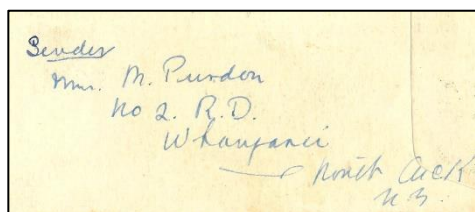 Sender
Mrs. M. Purdon
No 2. R.D.
Whangarei
North Auck
N.Z.